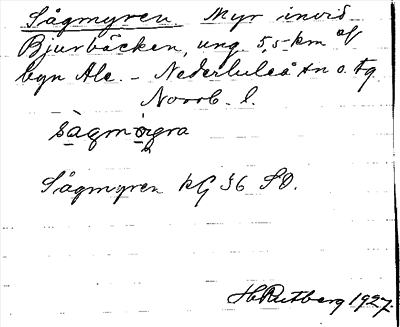 Sågmyren. Myr invid
Bjurbäcken, ung. 5,5 km af
byn Ale. - Nederluleå sn o. tg
Norrb. l.
Sågmyren kG 36 SO.
H Rutberg 1927.